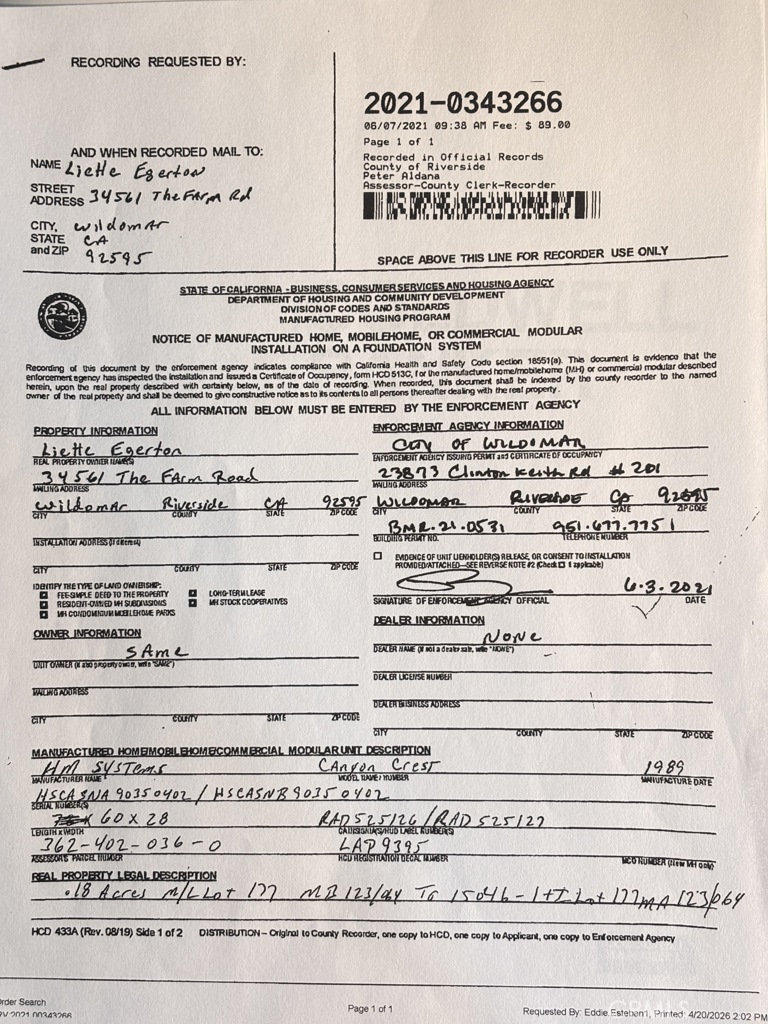 RECORDING REQUESTED BY:
2021-0343266
06/07/2021 09:38 AM Fee: $ 89.00
Page 1 of 1
Recorded in Official Records
County of Riverside
Peter Aldana
Assessor-County Clerk-Recorder
AND WHEN RECORDED MAIL TO:
NAME Liette Egerton
STREET ADDRESS 34561 The Farm Rd
CITY, Wildomar
STATE CA
and ZIP 92595
SPACE ABOVE THIS LINE FOR RECORDER USE ONLY
STATE OF CALIFORNIA - BUSINESS, CONSUMER SERVICES AND HOUSING AGENCY
DEPARTMENT OF HOUSING AND COMMUNITY DEVELOPMENT
DIVISION OF CODES AND STANDARDS
MANUFACTURED HOUSING PROGRAM
NOTICE OF MANUFACTURED HOME, MOBILEHOME, OR COMMERCIAL MODULAR
INSTALLATION ON A FOUNDATION SYSTEM
Recording of this document by the enforcement agency indicates compliance with California Health and Safety Code section 18551(a). This document is evidence that the
enforcement agency has inspected the installation and issued a Certificate of Occupancy, form HCD 513C, for the manufactured home/mobilehome (MH) or commercial modular described
herein, upon the real property described with certainty below, as of the date of recording. When recorded, this document shall be indexed by the county recorder to the named
owner of the real property and shall be deemed to give constructive notice as to its contents to all persons thereafter dealing with the real property.
ALL INFORMATION BELOW MUST BE ENTERED BY THE ENFORCEMENT AGENCY
PROPERTY INFORMATION
Liette Egerton
REAL PROPERTY OWNER NAME(S)
34561 The Farm Road
MAILING ADDRESS
Wildomar Riverside CA 92595
CITY COUNTY STATE ZIP CODE
INSTALLATION ADDRESS (if different)
CITY COUNTY STATE ZIP CODE
IDENTIFY THE TYPE OF LAND OWNERSHIP:
FEE-SIMPLE DEED TO THE PROPERTY LONG-TERM LEASE
RESIDENT-OWNED MH SUBDIVISIONS MH STOCK COOPERATIVES
MH CONDOMINIUM MOBILEHOME PARKS
ENFORCEMENT AGENCY INFORMATION
CITY OF WILDOMAR
ENFORCEMENT AGENCY ISSUING PERMIT and CERTIFICATE OF OCCUPANCY
23873 Clinton Keith Rd #201
MAILING ADDRESS
WILDOMAR RIVERSIDE CA 92595
CITY COUNTY STATE ZIP CODE
BMR-21-0531 951.677.7751
BUILDING PERMIT NO. TELEPHONE NUMBER
EVIDENCE OF UNIT LIENHOLDER(S) RELEASE, OR CONSENT TO INSTALLATION
PROVIDED/ATTACHED—SEE REVERSE NOTE #2 (Check if applicable)
6.3.2021
SIGNATURE OF ENFORCEMENT AGENCY OFFICIAL DATE
OWNER INFORMATION
SAME
UNIT OWNER (if also property owner, write "SAME")
MAILING ADDRESS
CITY COUNTY STATE ZIP CODE
DEALER INFORMATION
NONE
DEALER NAME (if not a dealer sale, write "NONE")
DEALER LICENSE NUMBER
DEALER BUSINESS ADDRESS
CITY COUNTY STATE ZIP CODE
MANUFACTURED HOME/MOBILEHOME/COMMERCIAL MODULAR UNIT DESCRIPTION
HM Systems Canyon Crest 1989
MANUFACTURER NAME MODEL NAME/NUMBER MANUFACTURE DATE
HSCASNA90350402/HSCASNB90350402
SERIAL NUMBER(S)
60 x 28 RAD525126/RAD525127
LENGTH x WIDTH CA INSIGNIA(S)/HUD LABEL NUMBER(S)
362-402-036-0 LAP9395
ASSESSOR'S PARCEL NUMBER HCD REGISTRATION DECAL NUMBER MCO NUMBER (New MH only)
REAL PROPERTY LEGAL DESCRIPTION
.18 Acres M/L Lot 177 MB 123/064 Tr 15046-1
HCD 433A (Rev. 08/19) Side 1 of 2 DISTRIBUTION – Original to County Recorder, one copy to HCD, one copy to Applicant, one copy to Enforcement Agency
Order Search
Page 1 of 1
Requested By: Eddie.Esteban1, Printed: 4/20/2026 2:02 PM
CRMLS